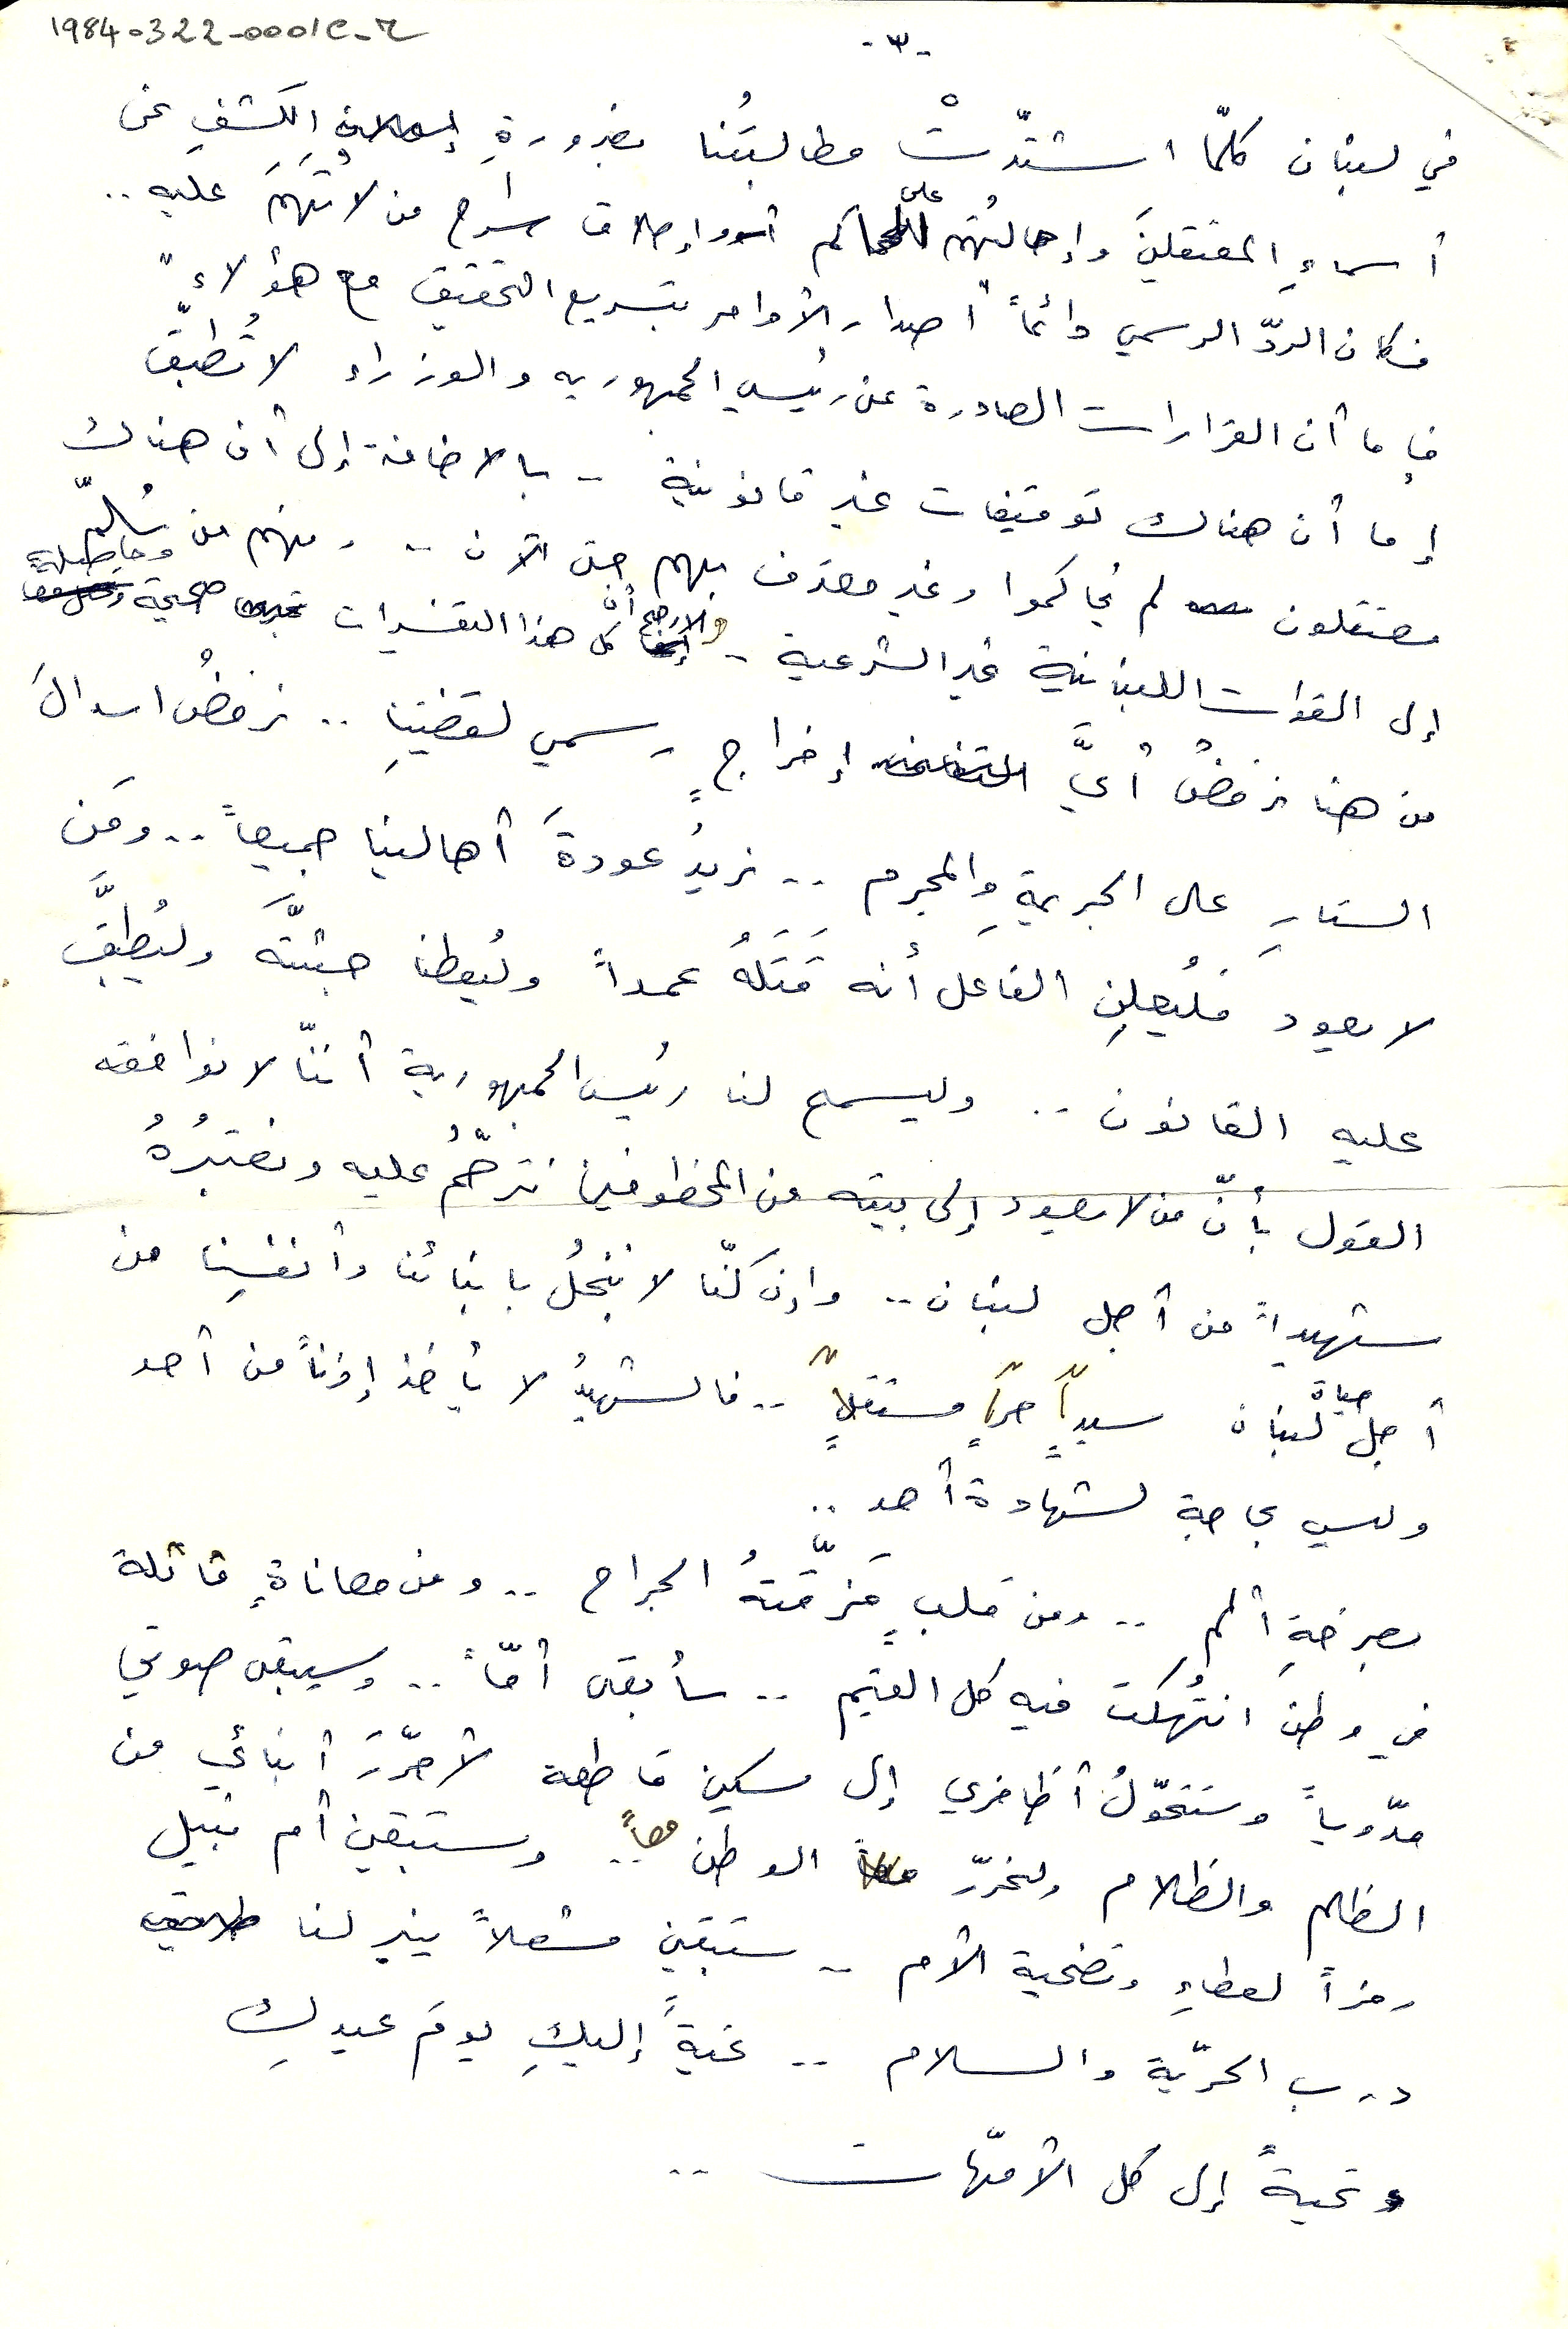 1984-322-0001c-2
-٣-
في لبنان كلمّا اشتدّتْ مطالبتُنا بضرورةِ الكشفِ عن
أسماءِ المعتقلينَ وإحالتُهم على المحاكم وإطلاق سراح من لا تُهَمَ عليه ..
فكان الردّ الرسمي دائماً "أصدار الأوامر بتسريع التحقيق مع هؤلاء"
فإما أن القرارات الصادرة عن رئيسي الجمهوريه والوزراء لا تُطبّق
إما أن هناك توقيفات غير قانونية - بالاضافة إلى أن هناك
معتقلون لم يُحاكموا وغير معترف بهم حتى الآن - ومنهم من سُلّم
إلى القوات اللبنانية غير الشرعية - والارجح أنّ كل هذا التفسيرات صحيحة وحاصلة
من هنا نرفضُ أيَّ إخراجٍ رسمي لقضيتِنا .. نرفضُ اسدالَ
الستارِ على الجريمةِ والمجرم .. نريدُ عودةَ أهالينا جميعاً .. ومَن
لا يعود فليُعلِنِ الفاعل أنه قَتَلَهُ عمداً وليُعطنا جثتَّهُ وليُطبَّق
عليه القانون .. وليسمح لنا رئيس الجمهورية أننّا لا نوافقه
القول بأنّ من لا يعود إلى بيته من المخطوفين نترحّمُ عليه ونعتبرُهُ
شهيداً من أجل لبنان .. وإن كنّا لا نبخلُ بابنائنا وأنفسِنا من
أجل حياة لبنان سيداً حراً مستقلاً .. فالشهيدُ لا يأخذ إذناً من أحد
وليس بحاجة لشهادة أحد ..
بصرخةِ ألمٍ .. ومن قلبٍ مَزقّتهُ الجراح .. ومن معاناةٍ قاتلة
في وطن انتُهكت فيه كل القيم .. سأبقى أمّاً .. وسيبقى صوتي
مدّوياً وستتحوّلُ أظافري إلى سكين قاطعة لأحرّرَ أبنائي من
الظلم والظلام ولنحررّ الوطن معاً .. وستبقين أم نبيل
رمزاً لعطاءِ وتضحية الأم .. ستبقين مشعلاً ينير لنا
درب الحرّية والسلام .. تحيةً إليكِ يومَ عيدكِ
وتحيةً إلى كل الأمّهات ..